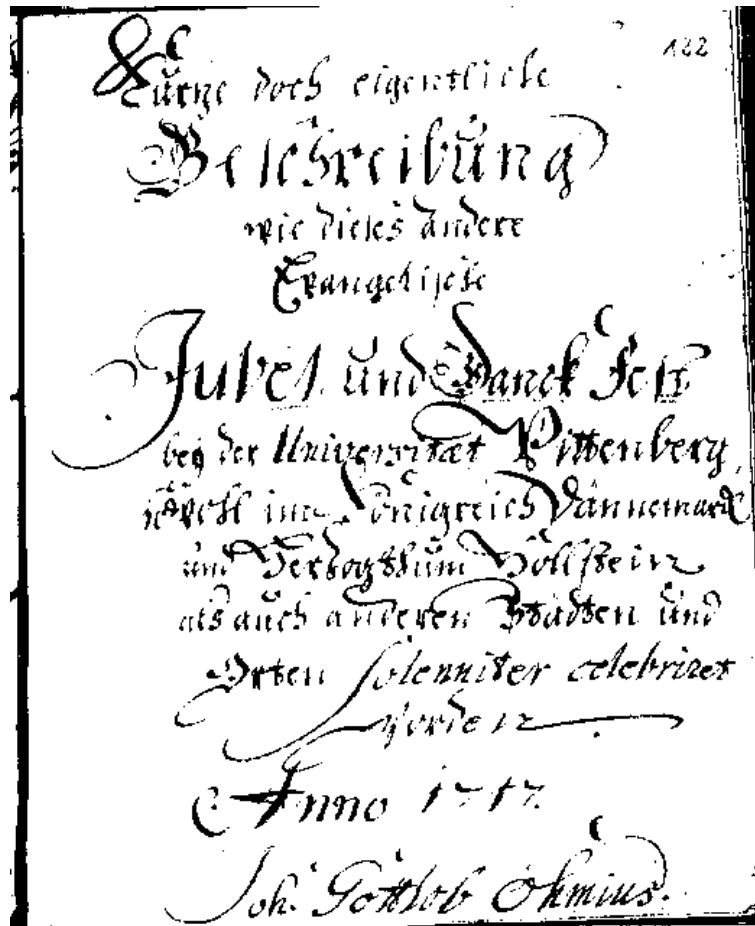 122
Kurtze doch eigentliche
Beschreibung
wie dieses andere
Evangelische
Jubel und Danck Fest
bey der Universitæt Wittenberg
sowohl im Königreich Dännemarck
und Hertzogthum Hollstein
als auch anderen Städten und
Orten solenniter celebriret
worden
Anno 1717.
Joh. Gottlob Ohmius.